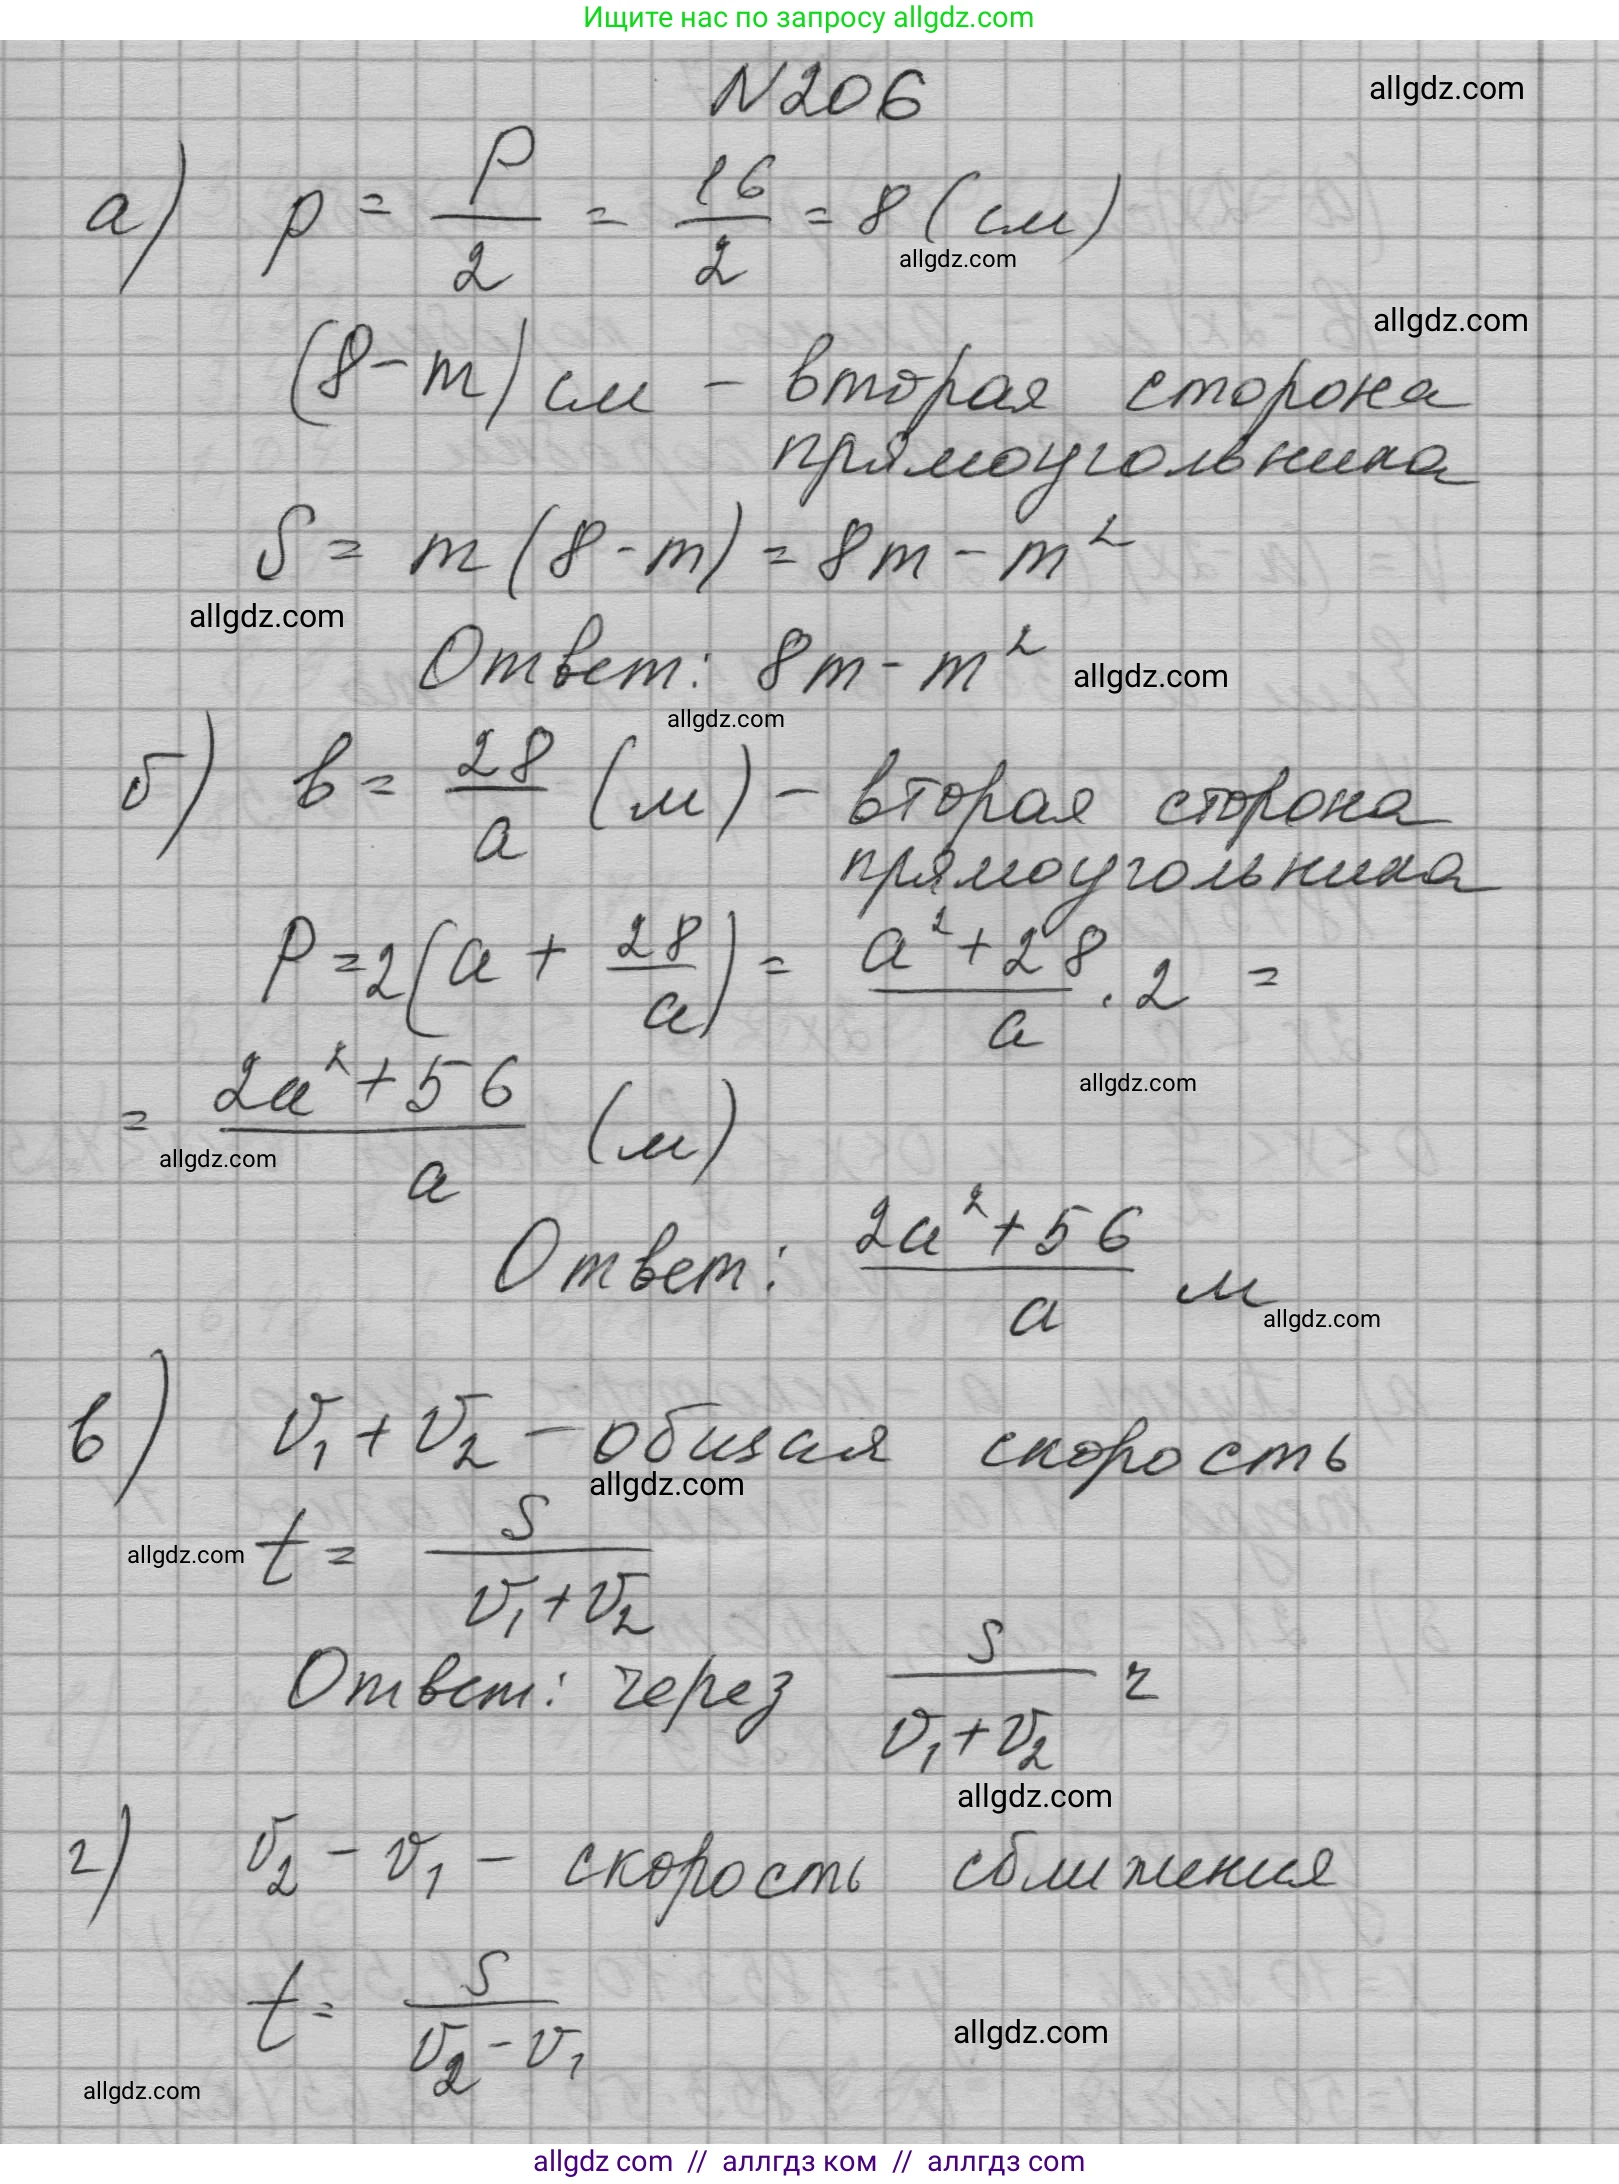 Ищите нас по запросу allgdz.com
N206
allgdz.com
а) p = P/2 = 16/2 = 8 (см)
allgdz.com
allgdz.com
(8 - m) см - вторая сторона
прямоугольника
S = m (8 - m) = 8m - m²
allgdz.com
Ответ: 8m - m²
allgdz.com
allgdz.com
б) в = 28/a (м) - вторая сторона
прямоугольника
P = 2(a + 28/a) = (a² + 28)/a · 2 =
allgdz.com
= (2a² + 56)/a (м)
allgdz.com
Ответ: (2a² + 56)/a м
allgdz.com
в) v₁ + v₂ - общая скорость
allgdz.com
t = s/(v₁ + v₂)
allgdz.com
Ответ: через s/(v₁ + v₂) ч
allgdz.com
г) v₂ - v₁ - скорость сближения
t = s/(v₂ - v₁)
allgdz.com
allgdz.com
allgdz.com // аллгдз ком // аллгдз.com